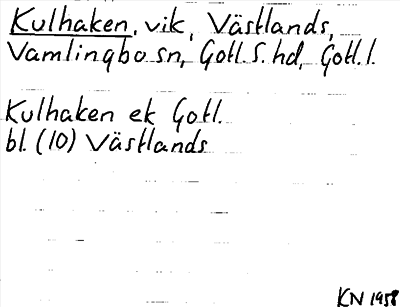 Kulhaken, vik, Västlands,
Vamlingbo sn, Gotl. S. hd, Gotl. l.
Kulhaken ek Gotl.
bl. (10) Västlands
KN 1958